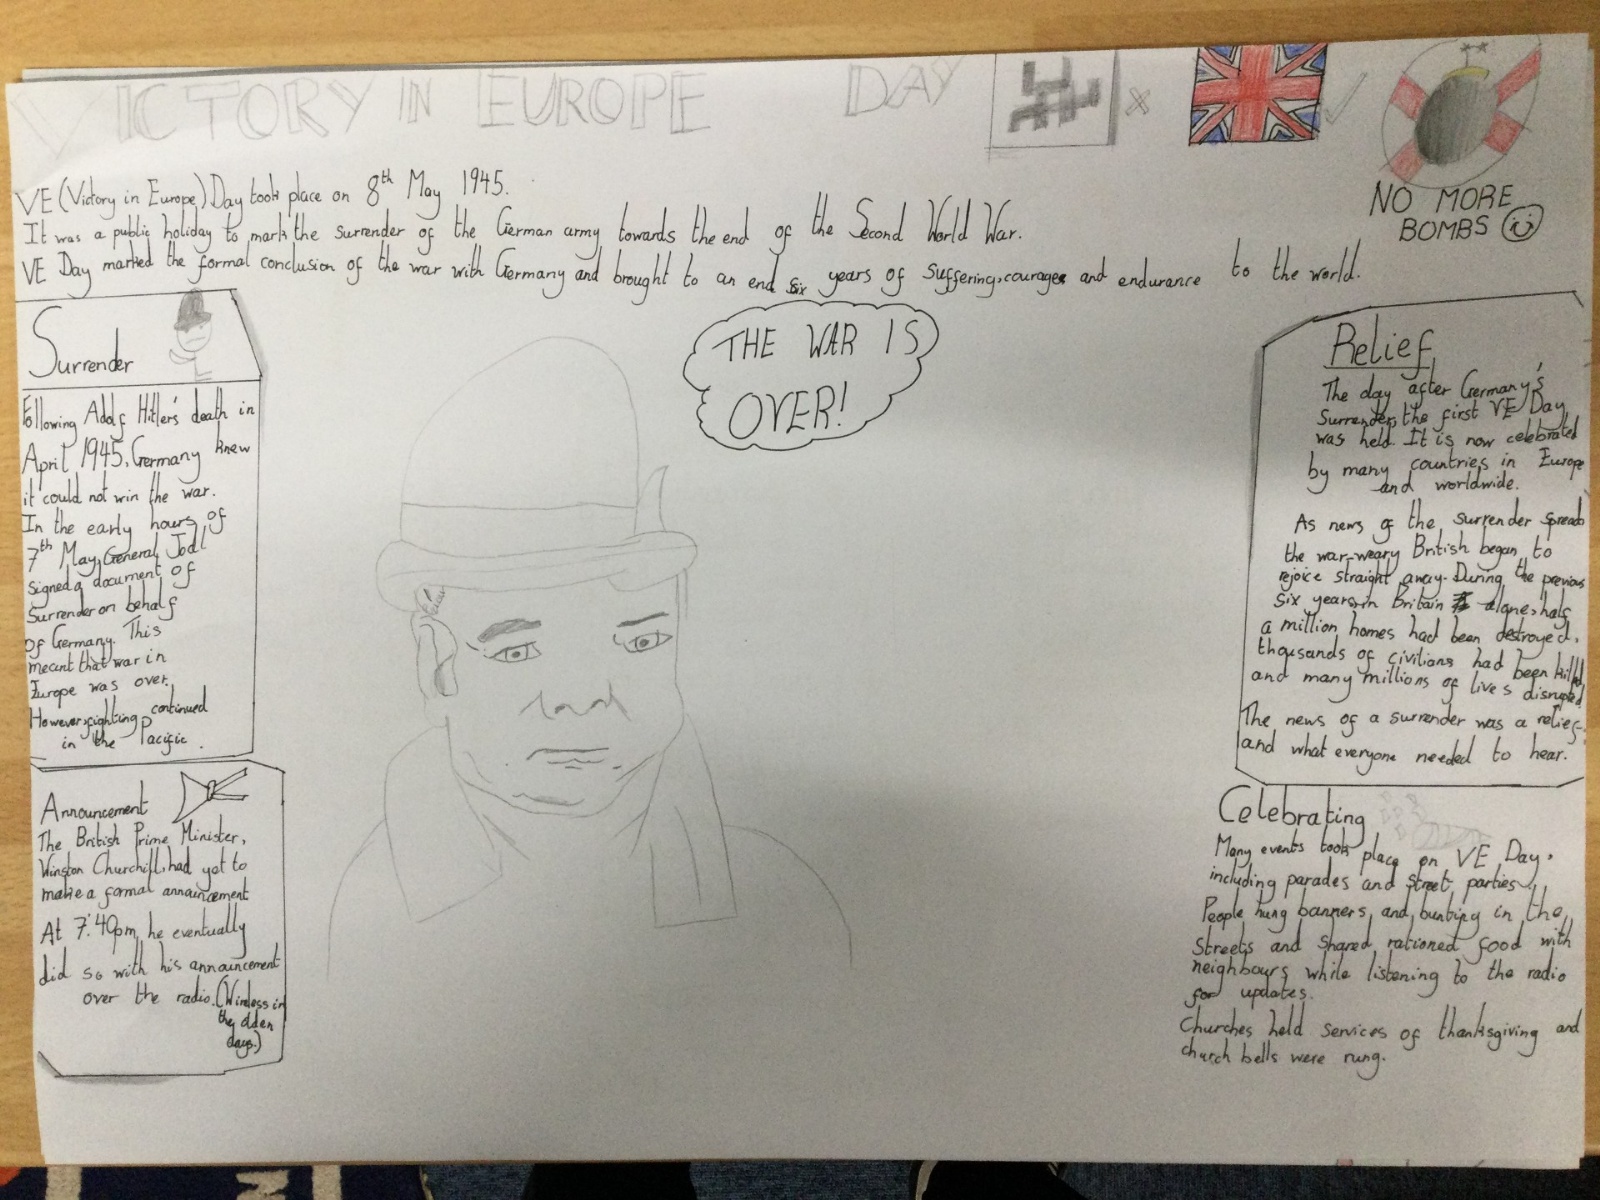 VICTORY IN EUROPE DAY
NO MORE
BOMBS
VE (Victory in Europe) Day took place on 8th May 1945.
It was a public holiday to mark the surrender of the German army towards the end of the Second World War.
VE Day marked the formal conclusion of the war with Germany and brought to an end six years of suffering, courage and endurance to the world.
Surrender
Following Adolf Hitler's death in
April 1945, Germany knew
it could not win the war.
In the early hours of
7th May, General Jodl
signed a document of
Surrender on behalf
of Germany. This
meant that war in
Europe was over.
However, fighting continued
in the Pacific.
Announcement
The British Prime Minister,
Winston Churchill, had yet to
make a formal announcement
At 7:40pm, he eventually
did so with his announcement
over the radio. (Wireless in
the olden
days.)
THE WAR IS
OVER!
Relief
The day after Germany's
Surrender, the first VE Day
was held. It is now celebrated
by many countries in Europe
and worldwide.
As news of the surrender spread
the war-weary British began to
rejoice straight away. During the previous
six years, in Britain alone, half
a million homes had been destroyed,
thousands of civilians had been killed
and many millions of lives disrupted.
The news of a surrender was a relief
and what everyone needed to hear.
Celebrating
Many events took place on VE Day,
including parades and street parties.
People hung banners and bunting in the
streets and shared rationed food with
neighbours while listening to the radio
for updates.
Churches held services of thanksgiving and
church bells were rung.